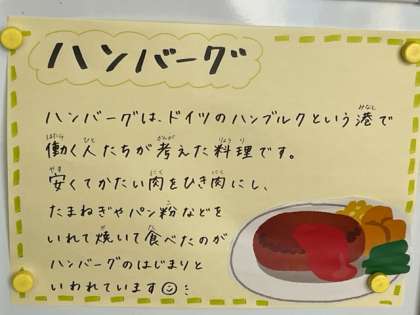 ハンバーグ
ハンバーグは、ドイツのハンブルクという港で
働く人たちが考えた料理です。
安くてかたい肉をひき肉にし、
たまねぎやパン粉などを
いれて焼いて食べたのが
ハンバーグのはじまりと
いわれています